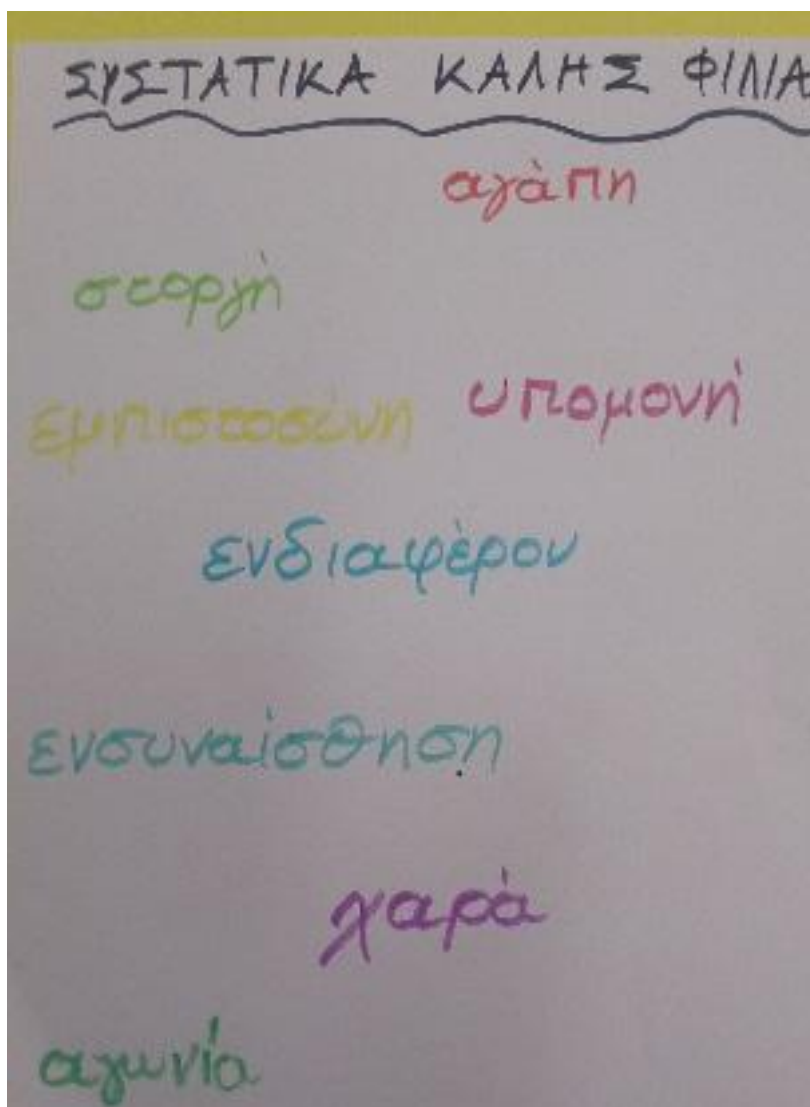 ΣΥΣΤΑΤΙΚΑ ΚΑΛΗΣ ΦΙΛΙΑ
αγάπη
στοργή
υπομονή
εμπιστοσύνη
ενδιαφέρον
ενσυναίσθηση
χαρά
αγωνία